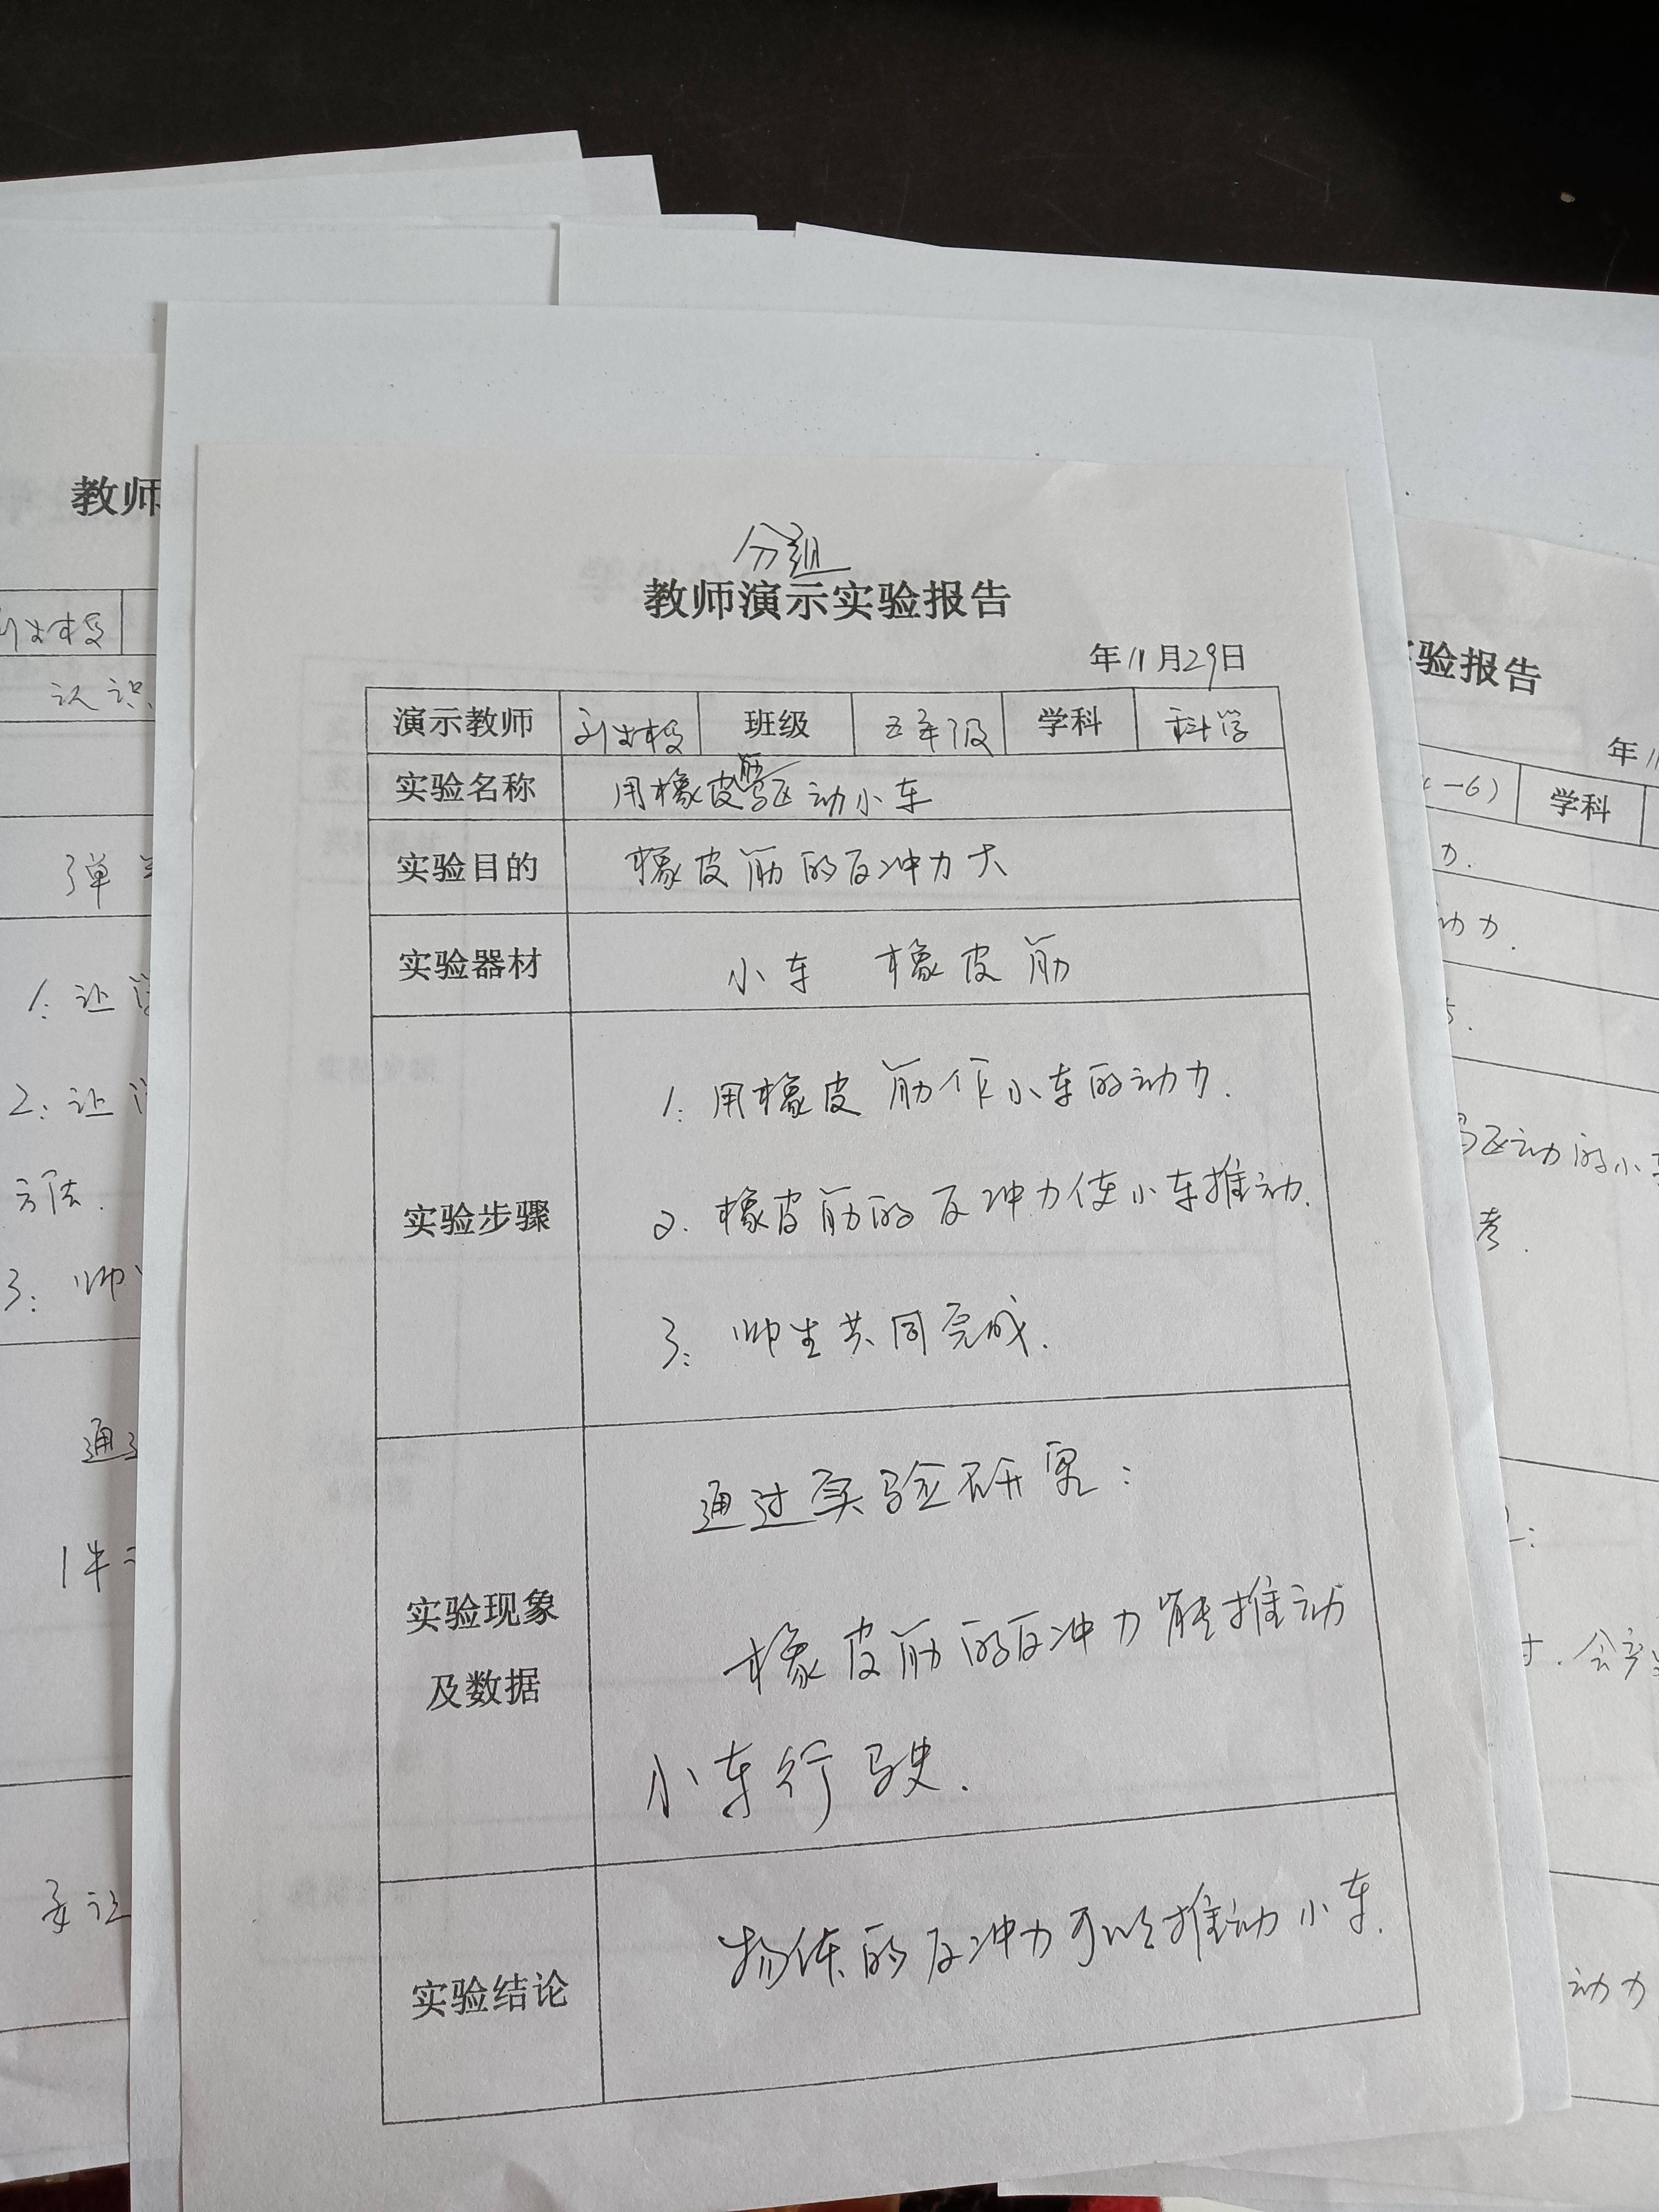 分组
教师演示实验报告
年11月29日
演示教师 班级 五年级 学科 科学
实验名称 用橡皮筋驱动小车
实验目的 橡皮筋的反冲力大
实验器材 小车 橡皮筋
实验步骤
1. 用橡皮筋作小车的动力.
2. 橡皮筋的反冲力使小车推动.
3. 师生共同完成.
实验现象
及数据
通过实验研究:
橡皮筋的反冲力能推动
小车行驶.
实验结论
物体的反冲力可以推动小车.
教师
认识
弹
1. 让
2. 让
方法.
3. 师
通过
验报告
年11
学科
力.
动力.
驱动的小车
考.
动力